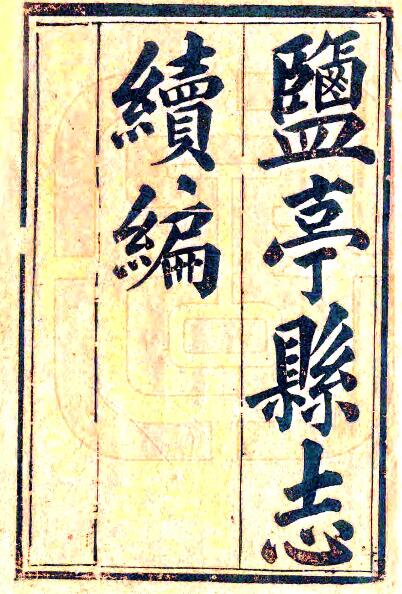 鹽亭縣志
續編